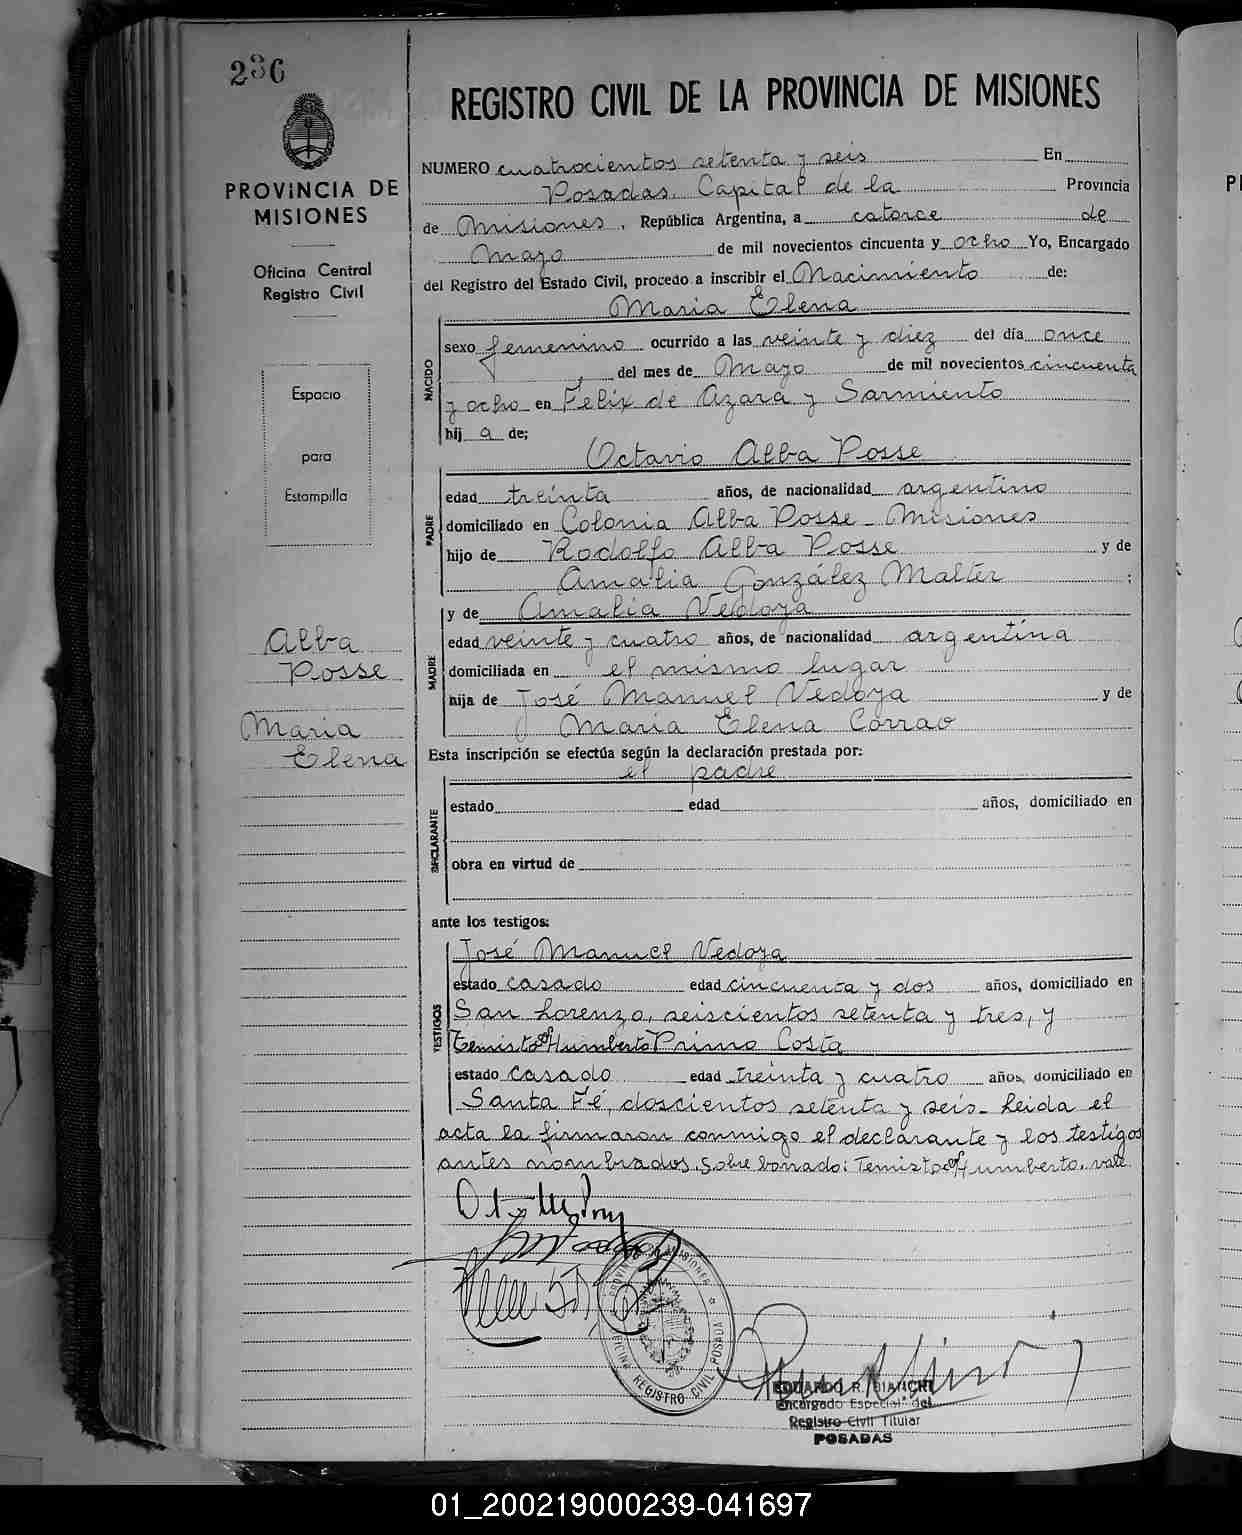 236
PROVINCIA DE
MISIONES
Oficina Central
Registro Civil
Espacio
para
Estampilla
Alba
Posse
Maria
Elena
REGISTRO CIVIL DE LA PROVINCIA DE MISIONES
NUMERO cuatrocientos setenta y seis En
Posadas, Capital de la Provincia
de Misiones, República Argentina, a catorce de
Mayo de mil novecientos cincuenta y ocho Yo, Encargado
del Registro del Estado Civil, procedo a inscribir el Nacimiento de:
Maria Elena
NACIDO
sexo femenino ocurrido a las veinte y diez del día once
del mes de Mayo de mil novecientos cincuenta
y ocho en Felix de Azara y Sarmiento
hij a de;
Octavio Alba Posse
PADRE
edad treinta años, de nacionalidad argentino
domiciliado en Colonia Alba Posse - Misiones
hijo de Rodolfo Alba Posse y de
Amalia González Malter ;
y de Amalia Vedoya
MADRE
edad veinte y cuatro años, de nacionalidad argentina
domiciliada en el mismo lugar
hija de José Manuel Vedoya y de
Maria Elena Corrao
Esta inscripción se efectúa según la declaración prestada por:
el padre
DECLARANTE
estado edad años, domiciliado en
obra en virtud de
ante los testigos:
José Manuel Vedoya
TESTIGOS
estado casado edad cincuenta y dos años, domiciliado en
San Lorenzo, seiscientos setenta y tres, y
Temisto Humberto Primo Costa
estado casado edad treinta y cuatro años, domiciliado en
Santa Fé, doscientos setenta y seis - Leida el
acta la firmaron conmigo el declarante y los testigos
antes nombrados. Sobre borrado: Temisto Humberto. vale.
PROVINCIA DE MISIONES
OFICINA REGISTRO CIVIL POSADAS
EDUARDO R. BIANCHI
Encargado Especial del
Registro Civil Titular
POSADAS
01_200219000239-041697